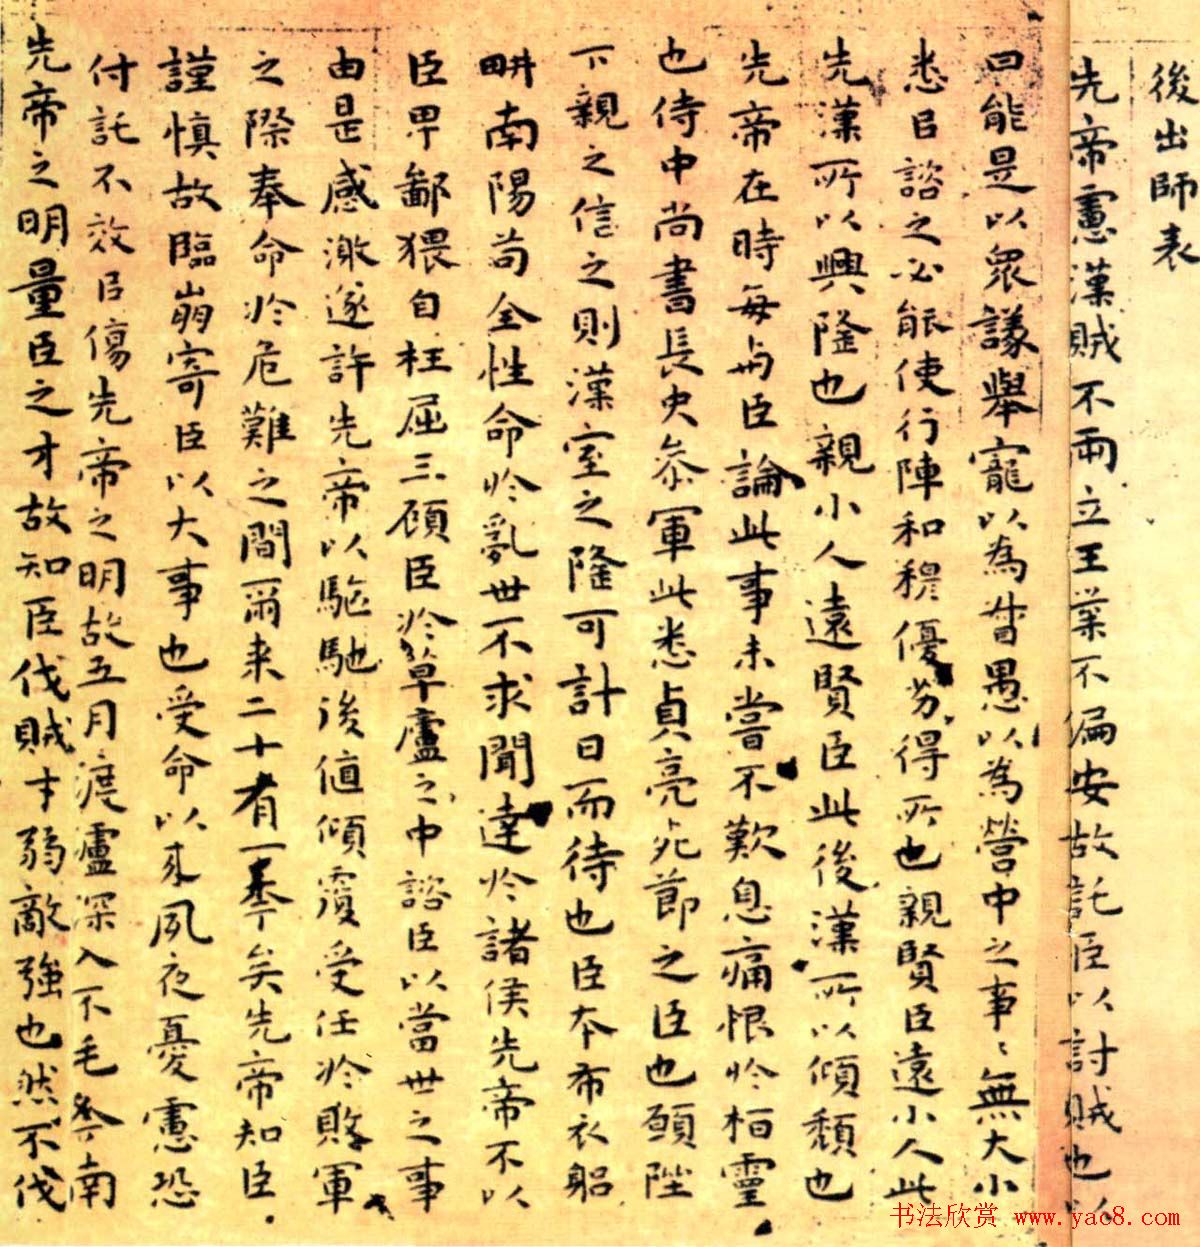 後出師表
先帝慮漢賊不兩立王業不偏安故託臣以討賊也以
曰能是以眾議舉寵以為督愚以為營中之事〻無大小
悉以諮之必能使行陣和穆優劣得所也親賢臣遠小人此
先漢所以興隆也親小人遠賢臣此後漢所以傾頹也
先帝在時每与臣論此事未嘗不歎息痛恨於桓靈
也侍中尚書長史參軍此悉貞亮死節之臣也願陛
下親之信之則漢室之隆可計日而待也臣本布衣躬
畊南陽苟全性命於亂世不求聞達於諸侯先帝不以
臣卑鄙猥自枉屈三顧臣於草廬之中諮臣以當世之事
由是感激遂許先帝以驅馳後值傾覆受任於敗軍
之際奉命於危難之間爾来二十有一年矣先帝知臣
謹慎故臨崩寄臣以大事也受命以来夙夜憂慮恐
付託不效臣傷先帝之明故五月渡瀘深入不毛今南
先帝之明量臣之才故知臣伐賊才弱敵強也然不伐
书法欣赏 www.yac8.com